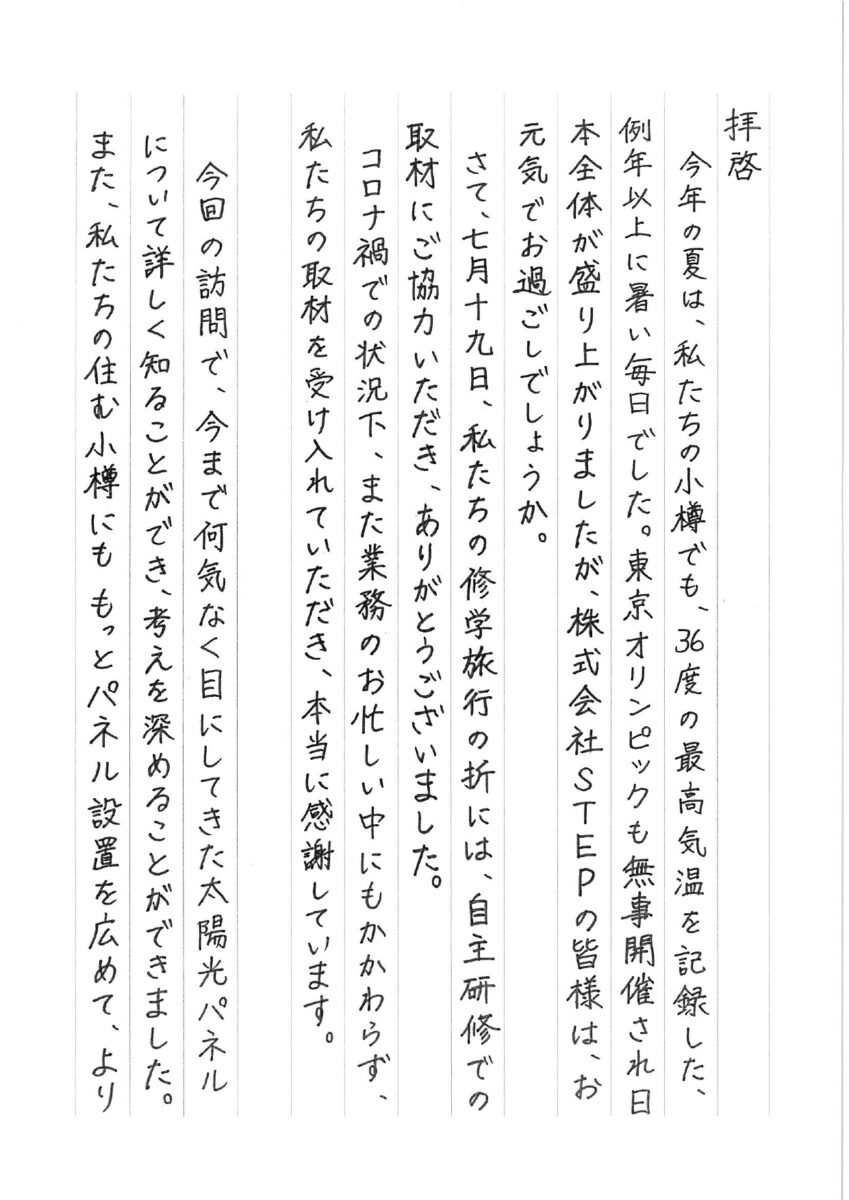 拝啓
今年の夏は、私たちの小樽でも、36度の最高気温を記録した、
例年以上に暑い毎日でした。東京オリンピックも無事開催され日
本全体が盛り上がりましたが、株式会社STEPの皆様は、お
元気でお過ごしでしょうか。
さて、七月十九日、私たちの修学旅行の折には、自主研修での
取材にご協力いただき、ありがとうございました。
コロナ禍での状況下、また業務のお忙しい中にもかかわらず、
私たちの取材を受け入れていただき、本当に感謝しています。
今回の訪問で、今まで何気なく目にしてきた太陽光パネル
について詳しく知ることができ、考えを深めることができました。
また、私たちの住む小樽にももっとパネル設置を広めて、より